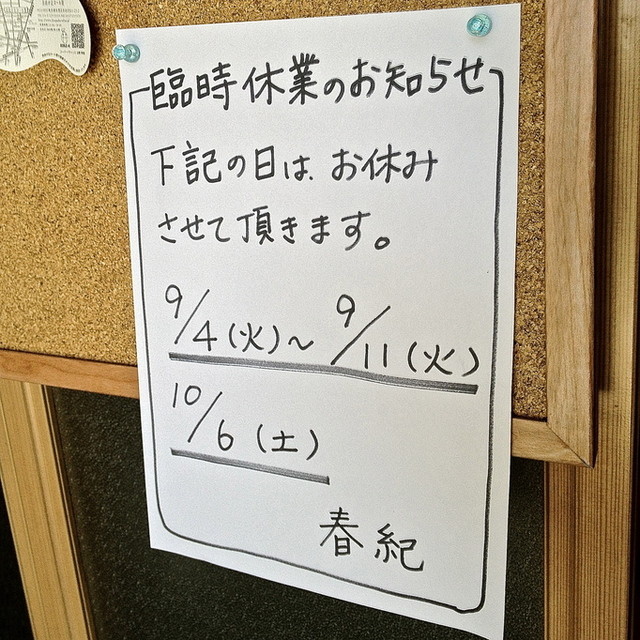 臨時休業のお知らせ
下記の日は、お休み
させて頂きます。
9/4(火)~9/11(火)
10/6(土)
春紀